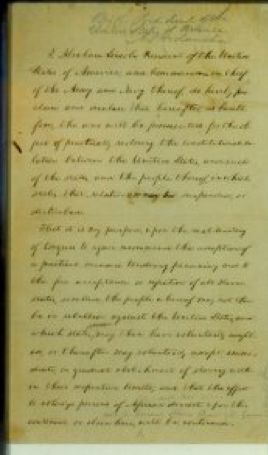 I, Abraham Lincoln, President of the United
States of America, and Commander-in-Chief
of the Army and Navy thereof, do hereby pro-
claim and declare that hereafter, as hereto-
fore, the war will be prosecuted for the ob-
ject of practically restoring the constitutional re-
lation between the United States, and each
of the states, and the people thereof, in which
states that relation is, or may be suspended, or
disturbed.
That it is my purpose, upon the next meeting
of Congress to again recommend the adoption of
a practical measure tendering pecuniary aid to
the free acceptance or rejection of all slave
states, so called, the people whereof may not then
be in rebellion against the United States, and
which states, may then have voluntarily adopt-
ed, or thereafter may voluntarily adopt, imme-
diate, or gradual abolishment of slavery with-
in their respective limits; and that the effort
to colonize persons of African descent upon the
continent, or elsewhere, will be continued.